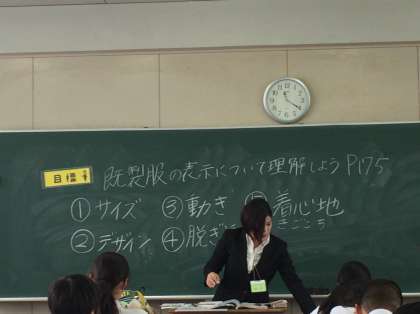 目標
既製服の表示について理解しよう P175
①サイズ ③動き ⑤着心地
きごこち
②デザイン ④脱ぎ